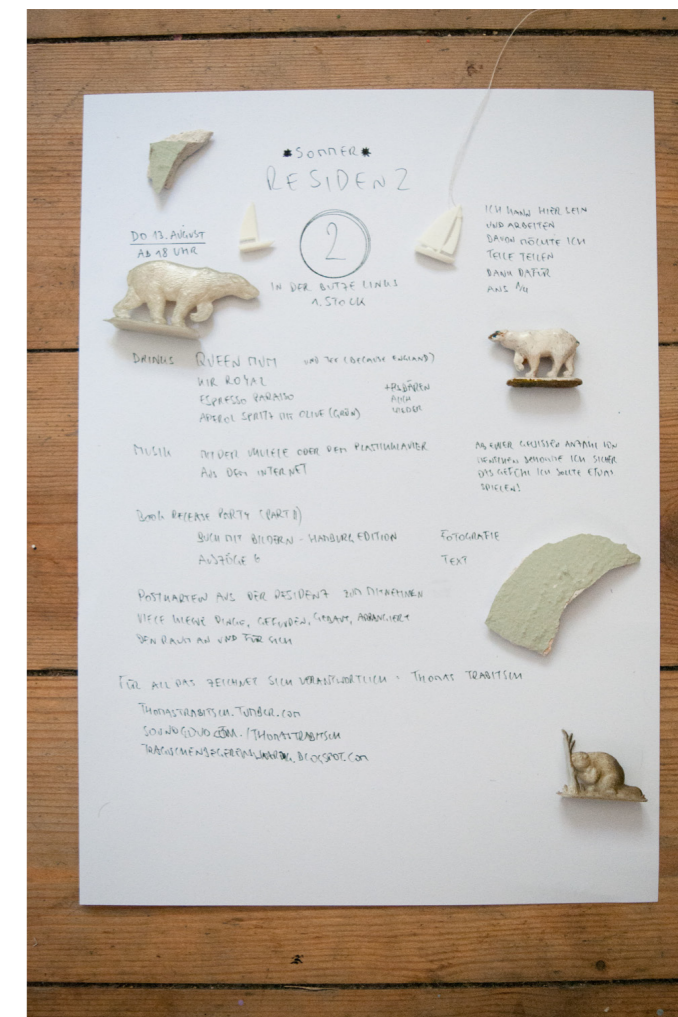 *SOMMER*
RESIDENZ
2
IN DER BUTZE LINKS
1. STOCK
DO 13. AUGUST
AB 18 UHR
ICH KANN HIER SEIN
UND ARBEITEN
DAVON MÖCHTE ICH
TEILE TEILEN
DANK DAFÜR
ANS
DRINKS QUEEN MUM UND TEE (BECAUSE ENGLAND)
KIR ROYAL
ESPRESSO
APEROL SPRITZ MIT OLIVE (GRÜN)
+ EISBÄREN
AUCH
MUSIK MIT DER UKULELE ODER DEM PLASTIKKLAVIER
AUS DEM INTERNET
AB EINER GEWISSEN ANZAHL VON
MENSCHEN BEKOMME ICH SICHER
DAS GEFÜHL ICH SOLLTE ETWAS
SPIELEN!
BOOK RELEASE PARTY (PART II)
BUCH MIT BILDERN - HAMBURG EDITION FOTOGRAFIE
AUSZÜGE 6 TEXT
POSTKARTEN AUS DER RESIDENZ ZUM MITNEHMEN
VIELE KLEINE DINGE, GEFUNDEN, GEBAUT, ARRANGIERT
DEN RAUM AN UND FÜR SICH
FÜR ALL DAS ZEICHNET SICH VERANTWORTLICH - THOMAS TRABITSCH
THOMASTRABITSCH.TUMBLR.COM
SOUNDCLOUD.COM/THOMASTRABITSCH